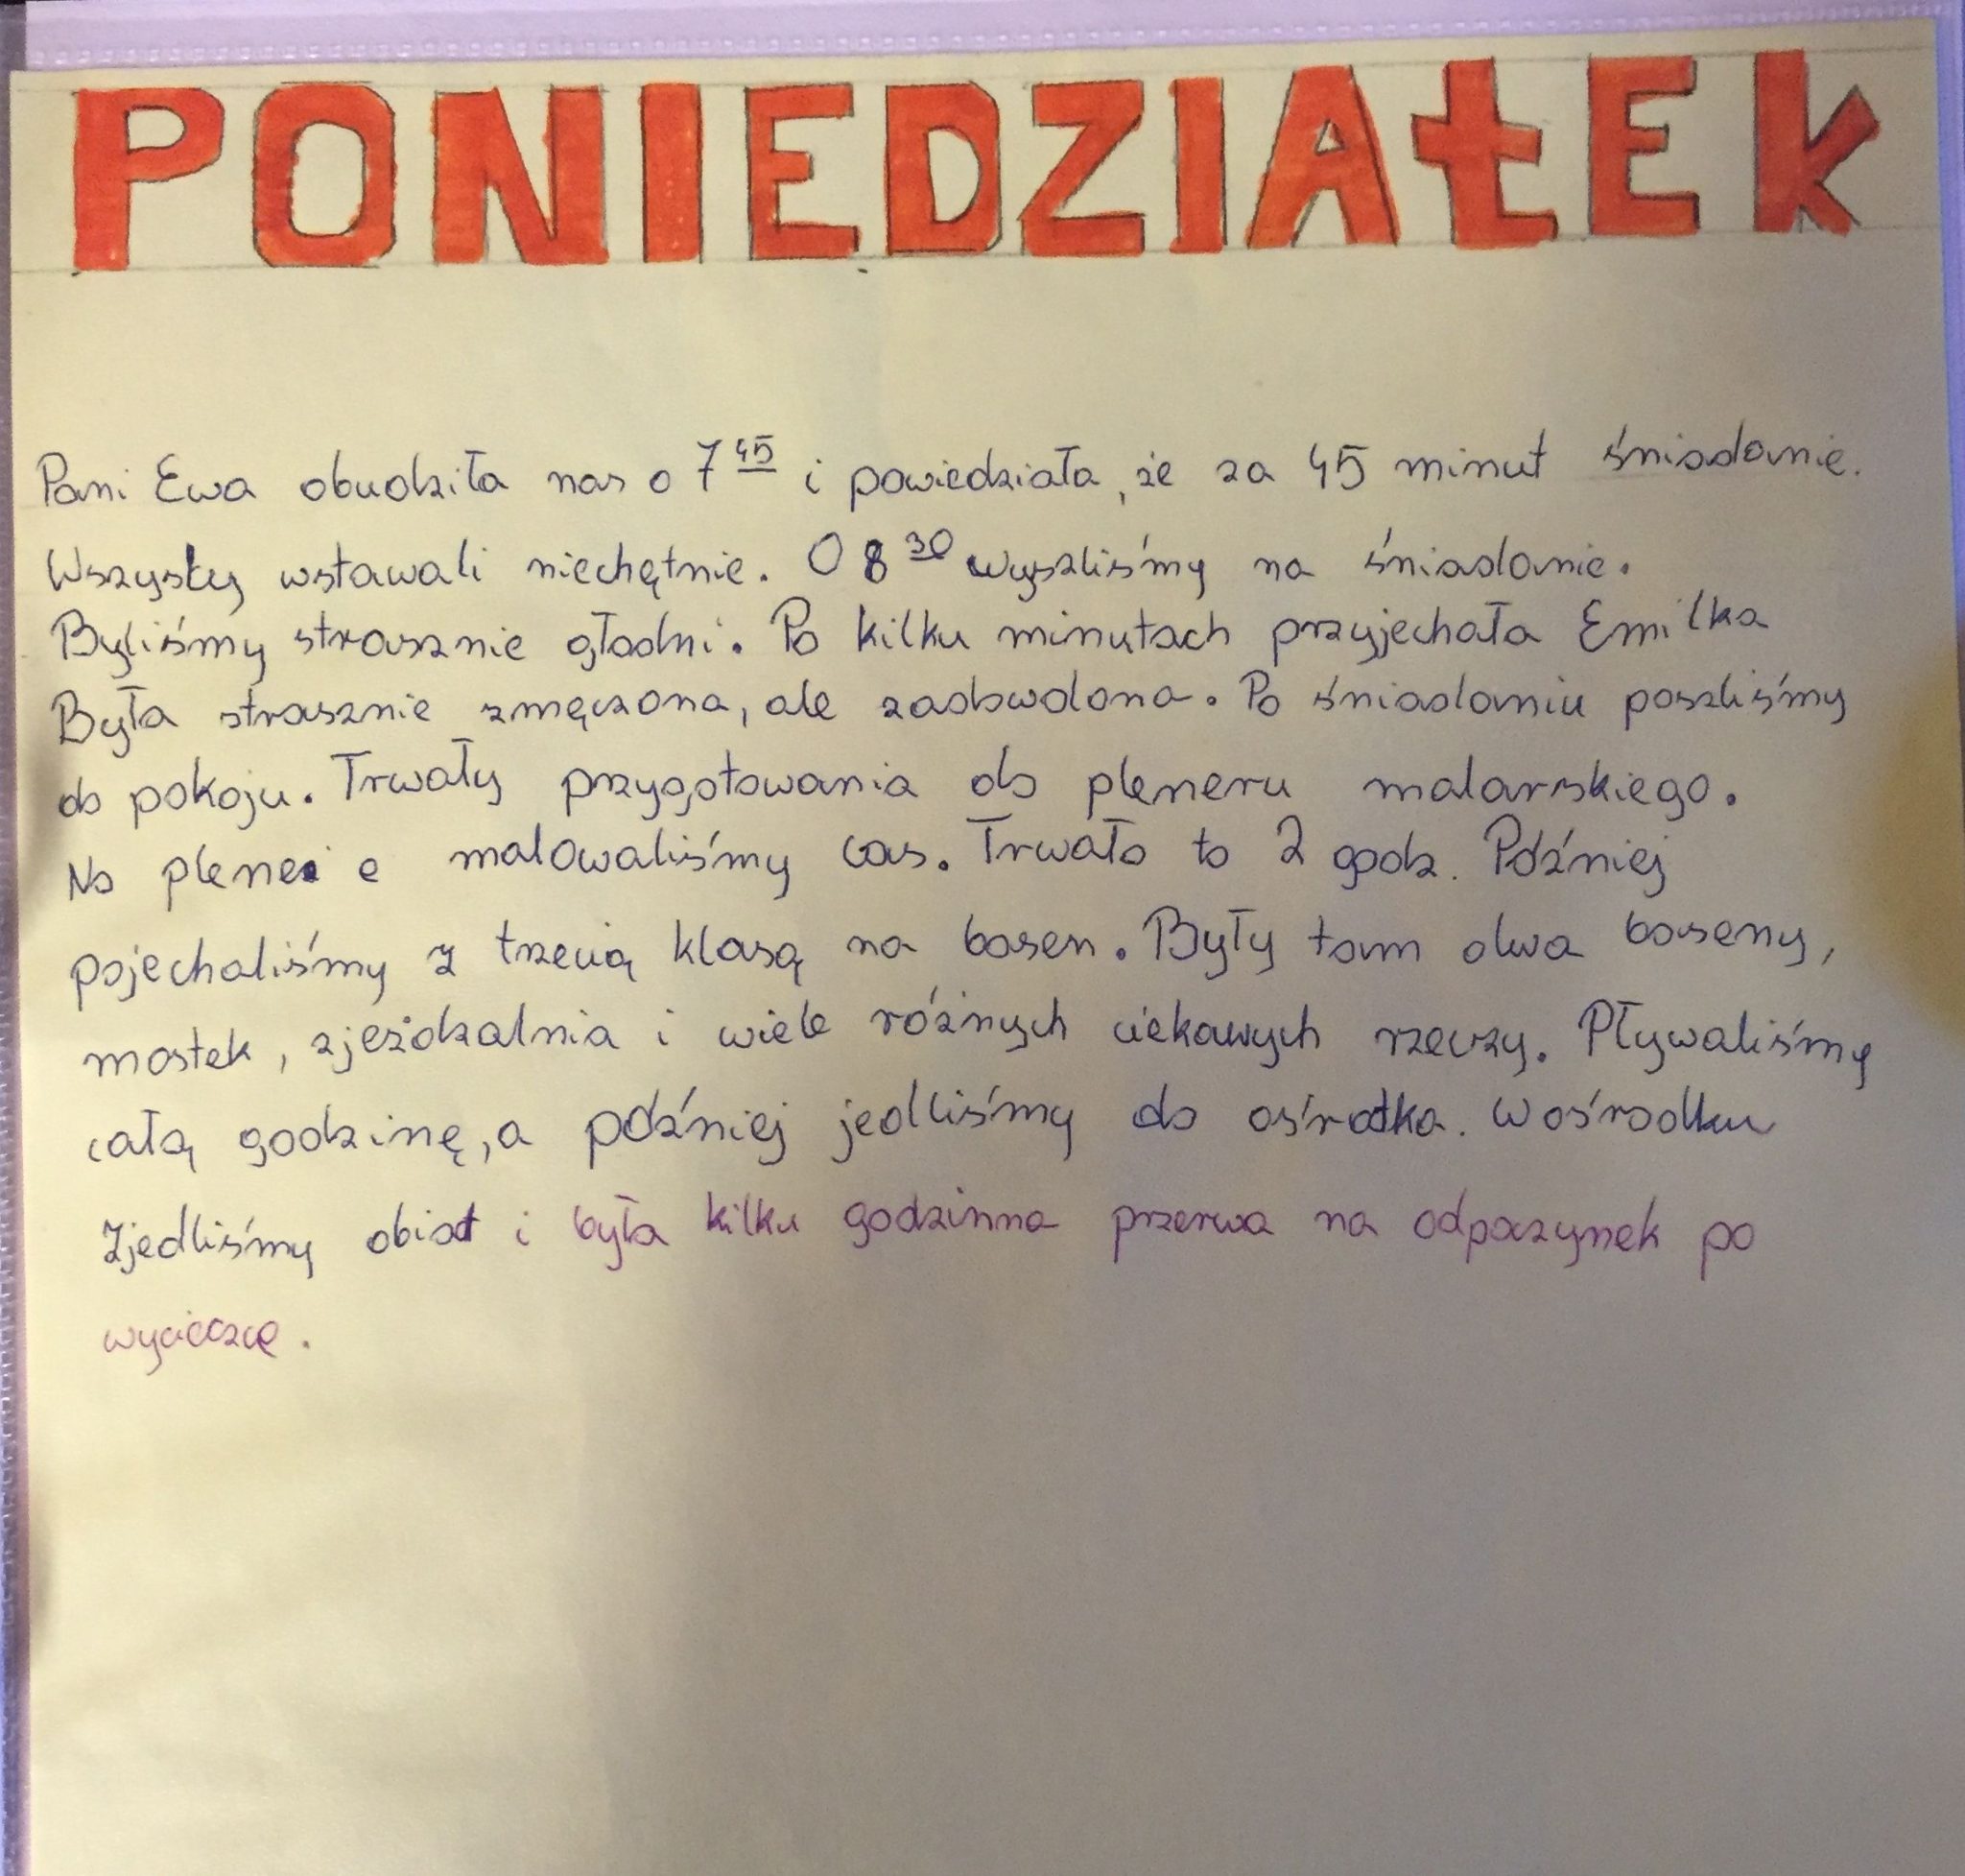 PONIEDZIAŁEK
Pani Ewa obudziła nas o 7 45 i powiedziała, że za 45 minut śniadanie.
Wszyscy wstawali niechętnie. O 8 30 wyszliśmy na śniadanie.
Byliśmy strasznie głodni. Po kilku minutach przyjechała Emilka
Była strasznie zmęczona, ale zadowolona. Po śniadaniu poszliśmy
do pokoju. Trwały przygotowania do pleneru malarskiego.
Na plene e malowaliśmy las. Trwało to 2 godz. Później
pojechaliśmy z trzecią klasą na basen. Były tam dwa baseny,
mostek, zjeżdżalnia i wiele różnych ciekawych rzeczy. Pływaliśmy
całą godzinę, a później jedliśmy do ośrodka. W ośrodku
zjedliśmy obiad i była kilku godzinna przerwa na odpoczynek po